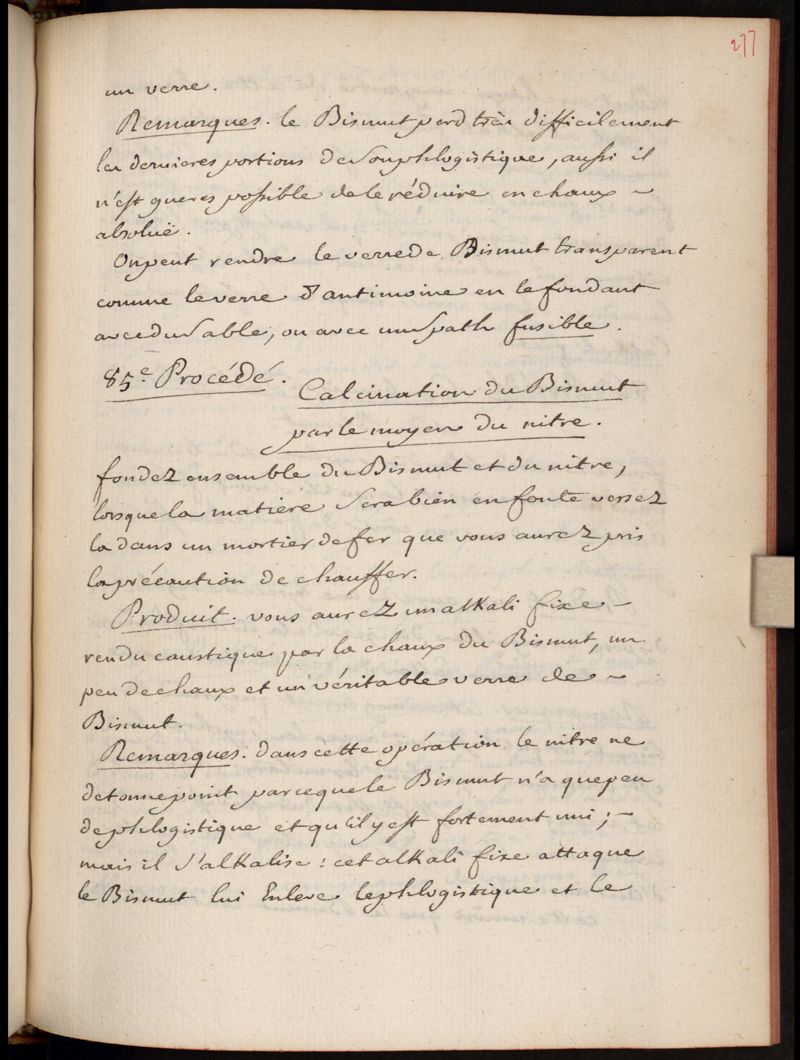 277
un verre.
Remarques. le Bismut perd très difficilement
les dernieres portions de son phlogistique, aussi il
n'est gueres possible de le réduire en chaux ~
absoluë.
On peut rendre le verre de Bismut transparent
comme le verre d'antimoine en le fondant
avec du sable, ou avec un spath fusible.
85.e Procédé. Calcination du Bismut
par le moyen du nitre.
fondez ensemble du Bismut et du nitre,
lorsque la matière sera bien en fonte versez
la dans un mortier de fer que vous aurez pris
la précaution de chauffer.
Produit. vous aurez un alKali fixe ~
rendu caustique par la chaux du Bismut, un
peu de chaux et un véritable verre de ~
Bismut.
Remarques. dans cette opération le nitre ne
detonne point parceque le Bismut n'a que peu
de phlogistique et qu'il y est fortement uni; ~
mais il s'alKalise : cet alKali fixe attaque
le Bismut lui Enleve le phlogistique et le